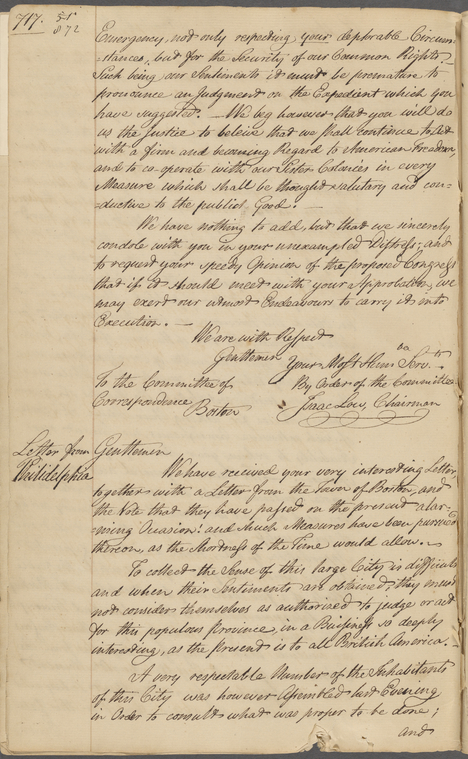 717.
51
872
Emergency, not only respecting your deplorable Circum-
-stances, but for the Security of our Common Rights.
Such being our Sentiments it must be premature to
pronounce any Judgment on the Expedient which you
have suggested. — We beg however that you will do
us the Justice to beleive that we shall continue to Act
with a firm and becoming Regard to American Freedom,
and to co-operate with our Sister Colonies in every
Measure which shall be thought salutary and con-
-ducive to the publick Good. —
We have nothing to add, but that we sincerely
condole with you in your unexampled Distress; and
to request your speedy Opinion of the proposed Congress
that if it should meet with your Approbation, we
may exert our utmost Endeavours to carry it into
Execution. —
We are with Respect
Gentlemen Your Most Hum Servts
ble
To the Committee of
By Order of the Committee
Correspondence
Boston
Isaac Low, Chairman
Letter from
Philidelphia
Gentlemen
We have received your very interesting Letter,
together with a Letter from the Town of Boston, and
the Vote that they have passed on the present alar-
-ming Occasion: and Such Measures have been pursued
thereon, as the Shortness of the Time would allow. —
To collect the Sense of this large City is difficult
and when their Sentiments are obtained, they must
not consider themselves as authorised to judge or act
for this populous Province, in a Buisiness so deeply
interesting, as the present is to all British America. —
A very respectable Number of the Inhabitants
of this City was however assembled last Evening
in Order to consult what was proper to be done;
and